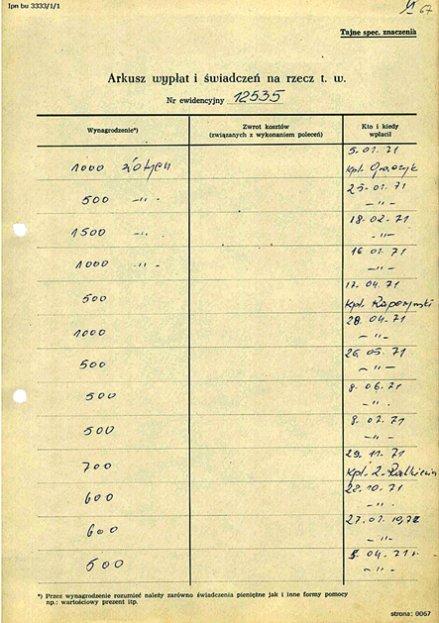 Ipn bu 3333/1/1
67
Tajne spec. znaczenia
Arkusz wypłat i świadczeń na rzecz t. w.
Nr ewidencyjny 12535
Wynagrodzenie*) Zwrot kosztów (związanych z wykonaniem poleceń) Kto i kiedy wpłacił
5.01.71
1000 złotych Kpt.
500 -„- 25-01.71
-„-
1500 -„- 18.02.71
-„-
1000 -„- 16 71
-„-
500 17.04.71
Kpt.
1000 28.04.71
-„-
500 26.05.71
-„-
500 8.06.71
-„-
500 8.07.71
-„-
700 29.11.71
Kpt.
600 71
-„-
600 27.01.
-„-
500 04.
-„-
*) Przez wynagrodzenie rozumieć należy zarówno świadczenia pieniężne jak i inne formy pomocy
np.: wartościowy prezent itp.
strona: 0067